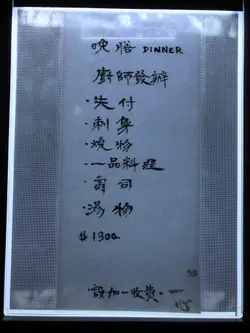 晚膳 DINNER
廚師發辦
·先付
·刺身
·燒物
·一品料理
·壽司
·湯物
$1300
·設加一收費·